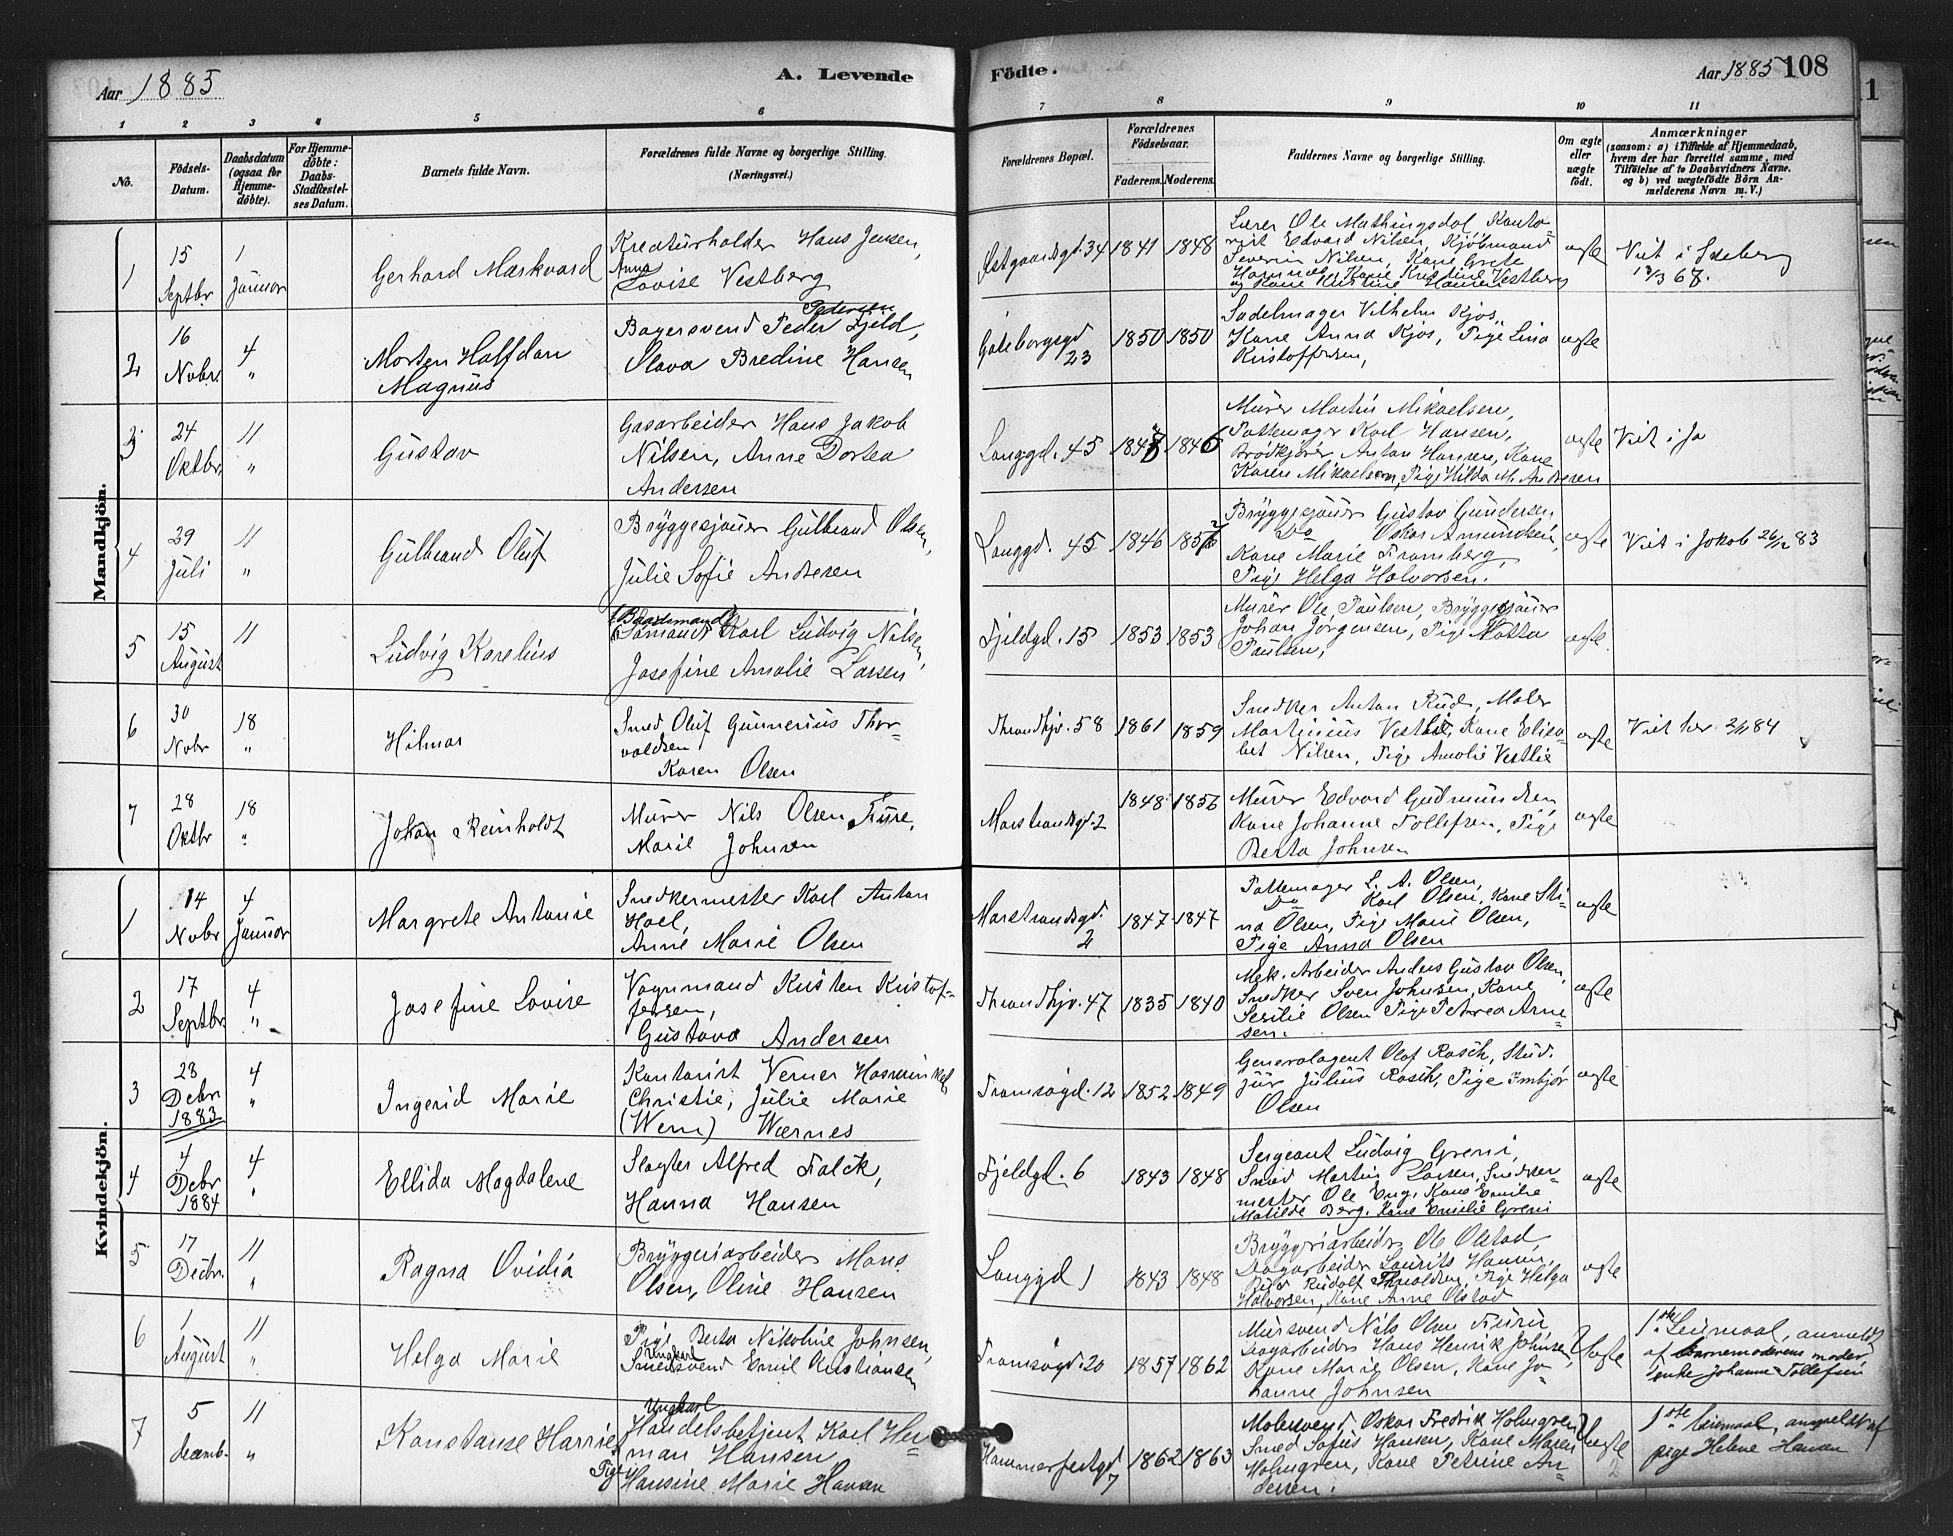 Aar 1885
A. Levende
Födte.
Aar 1885
108
1 2 3 4 5 6 7 8 9 10 11
No.
Födsels-
Datum.
Daabsdatum
(ogsaa for
Hjemme-
döbte).
For Hjemme-
döbte:
Daabs-
Stadfæstel-
ses Datum.
Barnets fulde Navn.
Forældrenes fulde Navne og borgerlige Stilling.
(Næringsvei.)
Forældrenes Bopæl.
Forældrenes
Födselsaar.
Faderens. Moderens.
Faddernes Navne og borgerlige Stilling.
Om ægte
eller
uægte
födt.
Anmærkninger
(saasom: a) i Tilfælde af Hjemmedaab,
hvem der har forrettet samme, med
Tilföielse af to Daabsvidners Navne.
og b) ved uægtefödte Börn An-
melderens Navn m. V.)
Mandkjön.
1
15
Septbr.
1
Januar
Gerhard Markvard
Kreaturholder Hans Jensen,
Anna
Lovise Vestberg
Østgaardsgd. 34
1841
1848
Lærer Ole Mathingsdal, Konto-
rist Edvard Nilsen, Kjöbmand
Severin Nilsen, Kone Grete
Kone Kristine Vestberg
ægte
Viet i
13/3 67.
2
16
Novbr.
4
"
Morten Halfdan
Magnus
Pedersen
Bagersvend Peder Fjeld,
Olava Bredine Hansen
Göteborgsgd
23
1850
1850
Sadelmager Vilhelm Kjos,
Kone Anna Kjos, Pige Lina
Kristoffersen,
ægte
3
24
Oktbr.
11
"
Gustav
Gasarbeider Hans Jakob
Nilsen, Anne Dortea
Andersen
Langgd. 45
1846
Murer Martin Mikaelsen,
Pottemager Karl Hansen,
Brödkjörer Anton Hansen, Kone
Karen Mikaelsen, Pige Hilda M. Andresen
ægte
Viet i Ja
4
29
Juli
11
"
Gulbrand Oluf
Bryggesjouer Gulbrand Olsen,
Julie Sofie Andresen
Langgd. 45
1846
Bryggesjouer Gustav Gundersen
Do Oskar Amundsen,
Kone Marie Tramberg,
Pige Helga Halvorsen.
ægte
Viet i Jakob 26/12 83
5
15
August
11
Ludvig Karelius
(Baadsmand)
Sömand Karl Ludvig Nilsen,
Josefine Amalie Larsen
Fjeldgd. 15
1853
1853
Murer Ole Paulsen, Bryggesjouer
Johan Jörgensen, Pige
Paulsen,
ægte
6
30
Nobr
18
"
Hilmar
Smed Oluf Gunnerius Thor-
valdsen
Karen Olsen
Throndhjv. 58
1861
1859
Snedker Anton Rud, Maler
Martinius Vestlie, Kone Elisa-
bet Nilsen, Pige Amalie Vestlie
ægte
Viet her. 2/11 84
7
28
Oktbr
18
"
Johan Reinholdt
Murer Nils Olsen Furu,
Marie Johnsen
Marstrandsgd. 2
1848
1856
Murer Edvard Gudmundsen,
Kone Johanne Tollefsen, Pige
Berta Johnsen
ægte
Kvindekjön.
1
14
Nobr
4
Januar
Margrete Antonie
Snedkermester Karl Anton
Hoel,
Anne Marie Olsen
Marstrandsgd.
2
1847
1847
Pottemager L. A. Olsen,
Do Karl Olsen, Kone Sti-
na Olsen, Pige Marie Olsen,
Pige Anna Olsen
ægte
2
17
Septbr.
4
"
Josefine Lovise
Vognmand Kristen Kristof-
fersen,
Gustava Andersen
Throndhjv. 47
1835
1840
Mek. Arbeider Anders Gustav Olsen,
Snedker Sven Johnsen, Kone
Sesilie Olsen Pige Petrea Arne-
sen.
ægte
3
28
Debr
1883
4
"
Ingerid Marie
Kontorist Verner
Christie, Julie Marie
(Wern) Wærnes
Tromsögd. 12
1852
1849
Generalagent Olaf Rasch, Stud.
jur Julius Rasch, Pige Imbjör
Olsen
ægte
4
4
Debr
1884
4
"
Ellida Magdalene
Slagter Alfred Falck,
Hanna Hansen
Fjeldgd. 6
1843
1848
Sergeant Ludvig Greni,
Smed Martin Larsen, Snedker-
mester Ole Eng, Kone Emilie
Matilde Berg, Kone Emilie Greni
ægte
5
17
Decbr.
11
"
Ragna Ovidia
Bryggeriarbeider Mons
Olsen, Oline Hansen
Langgd 1
1843
1848
Bryggeriarbeider Ole Olstad
Dagarbeider Laurits Hansen,
Rudolf Pige Helga
Halvorsen, Kone Anne Olstad
ægte
6
1
August
11
"
Helga Marie
Pige Berta Nikoline Johnsen,
Ungkarl
Smedsvend Emil Kristiansen
Tromsögd. 20
1857
1862
Mursvend Nils Olsen Furu
Dagarbeider Hans Henrik Johnsen,
Kone Marie Olsen, Kone Jo-
hanne Johnsen
Uægte
1ste Leiermaal, anmeldt
af Barnemoderens moder
enke Johanne Tollefsen
7
5
decemb.
11
"
Konstanse Harriet
Ungkarl
Handelsbetjent Karl Her-
man Hansen
Pige
Hansine Marie Hansen
Hammerfestgd
7
1862
1863
Malersvend Oskar Fredrik Holmgren
Smed Sofus Hansen, Kone Maren
Holmgren, Kone Petrine An-
dersen.
Uægte
1ste leiermaal, anmeldt af
pige Helene Hansen